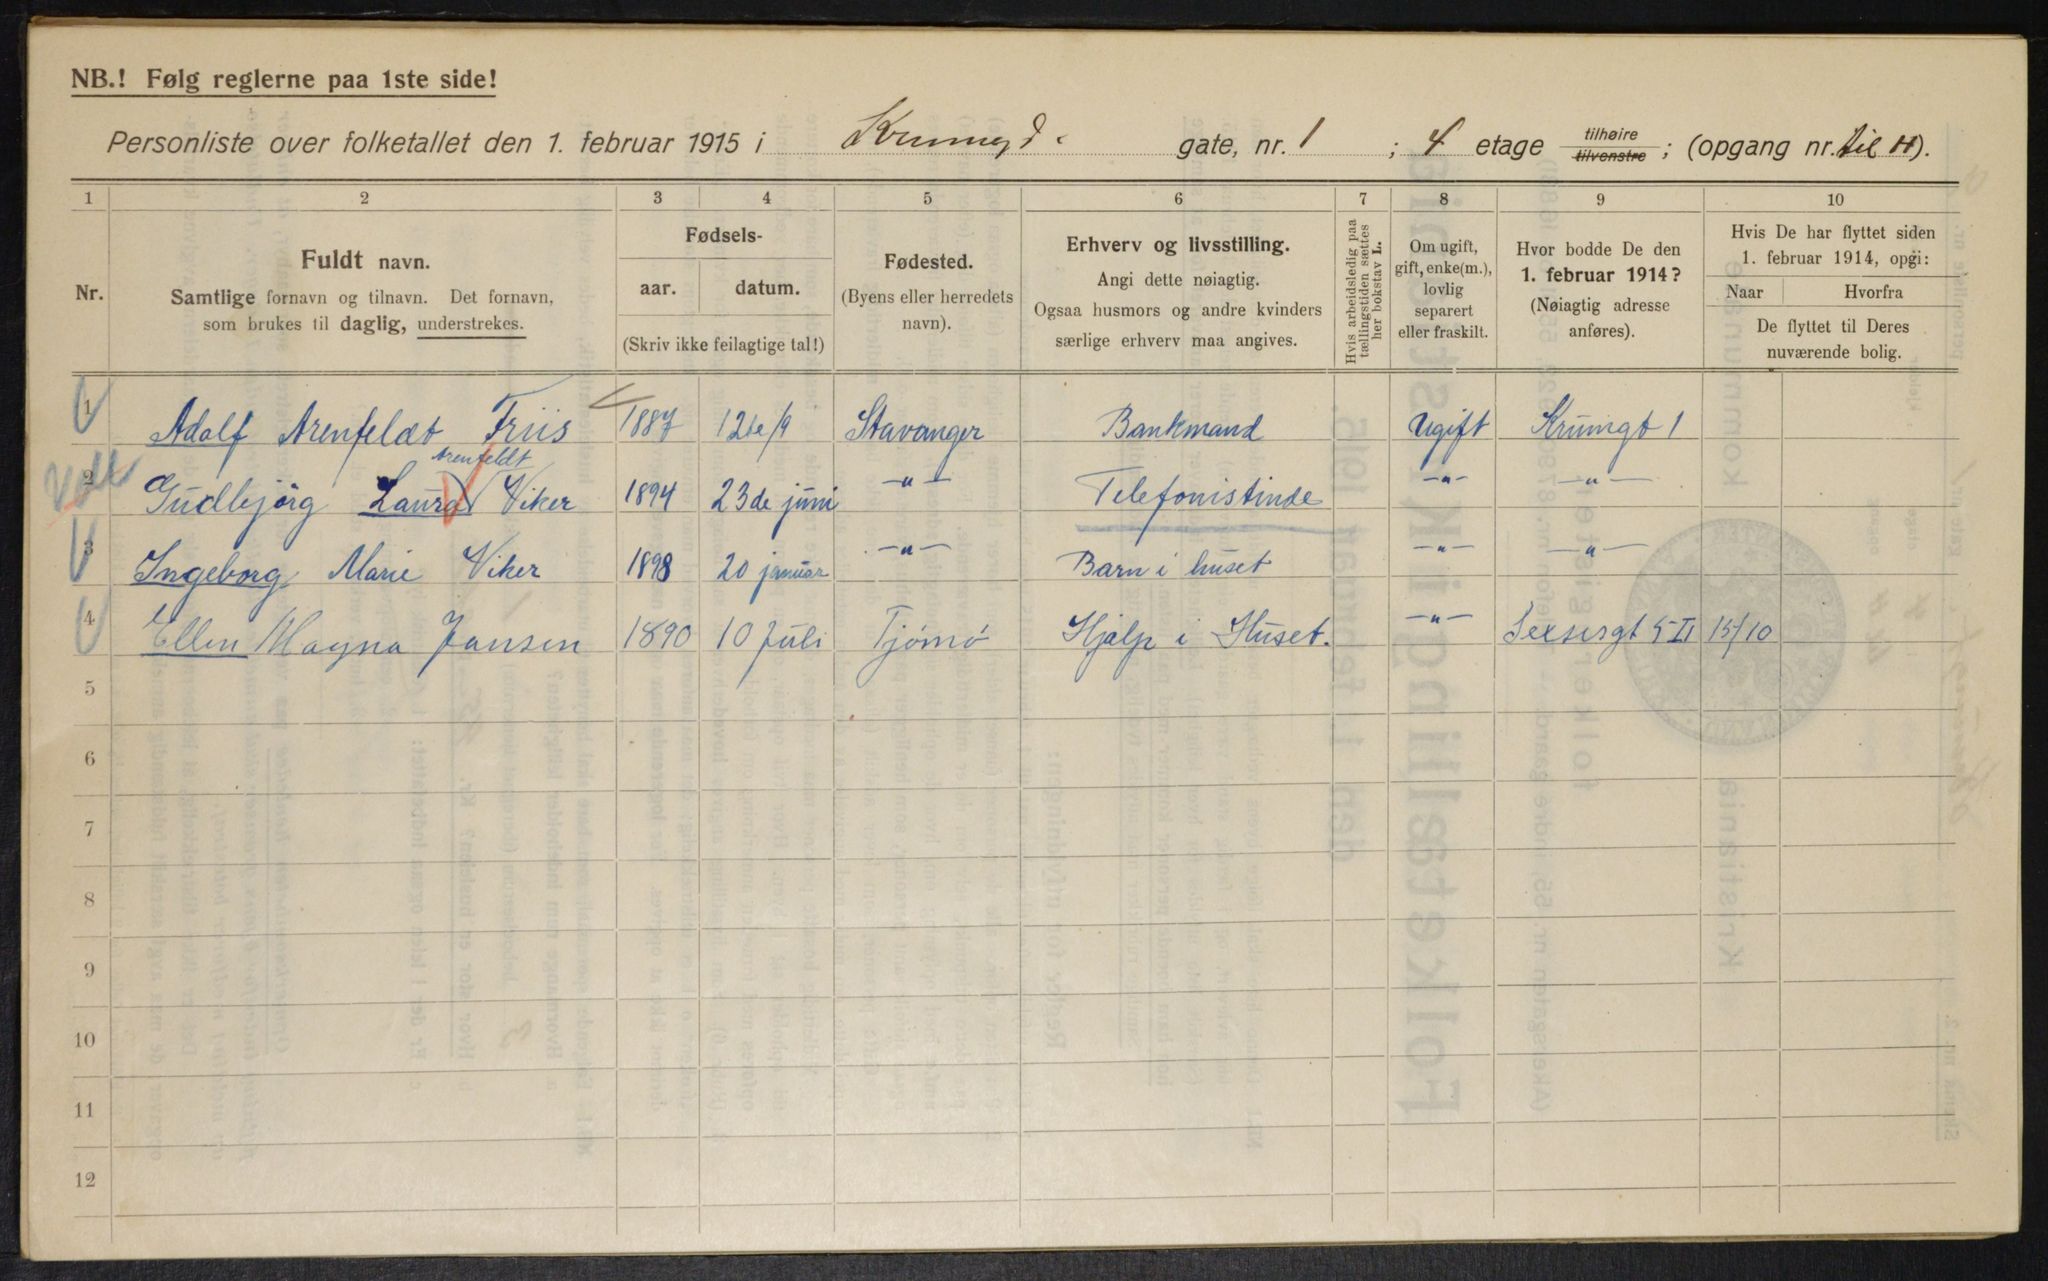 NB.! Følg reglerne paa 1ste side!
Personliste over folketallet den 1. februar 1915 i Krumgd. gate, nr. 1 ; 4 etage tilhøire tilvenstre ; (opgang nr. til H).
1 2 3 4 5 6 7 8 9 10
Nr.
Fuldt navn.
Samtlige fornavn og tilnavn. Det fornavn,
som brukes til daglig, understrekes.
Fødsels-
aar. datum.
(Skriv ikke feilagtige tal!)
Fødested.
(Byens eller herredets
navn).
Erhverv og livsstilling.
Angi dette nøiagtig.
Ogsaa husmors og andre kvinders
særlige erhverv maa angives.
Hvis arbeidsledig paa
tællingstiden sættes
her bokstav L.
Om ugift,
gift, enke(m.),
lovlig
separert
eller fraskilt.
Hvor bodde De den
1. februar 1914?
(Nøiagtig adresse
anføres).
Hvis De har flyttet siden
1. februar 1914, opgi:
Naar Hvorfra
De flyttet til Deres
nuværende bolig.
1 Adolf Arenfelat Friis 1887 12te/9 Stavanger Bankmand Ugift Krumgt 1
Arenfeldt
2 Gudbjörg Laura Viker 1894 23de juni -"- Telefonistinde -"- -"-
3 Ingeborg Marie Viker 1898 20 januar -"- Barn i huset -"- -"-
4 Ellen Magna Jansen 1890 10 Juli Tjömö Hjalp i Huset. -"- 5 II 15/10
5
6
7
8
9
10
11
12